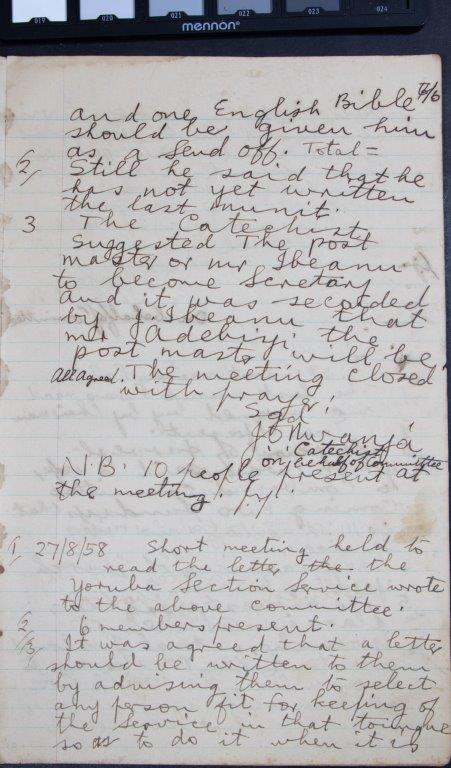 019 020 021 022 023 024
mennon
and one English Bible 7/6
should be given him
as a Send off. Total =
2/ Still he said that he
has not yet written
the last munit.
3 The Catechist
Suggested The post
master or mr Ibeanu
to become Scretary
and it was seconded
by J. Ibeanu that
mr Jadebiyi the
post master will be
All agreed. The meeting closed
with prayer!
Sgd
J. O. Nwanja
Catechist
on behalf of Committee
N.B. 10 people present at
the meeting.
1/ 27/8/58 Short meeting held to
read the letter the the
Yoruba Section Service wrote
to the above committee.
2/ 6 members present.
3/ It was agreed that a letter
should be written to them
by advising them to select
any person fit for keeping of
the service in that toungue
so as to do it when it is